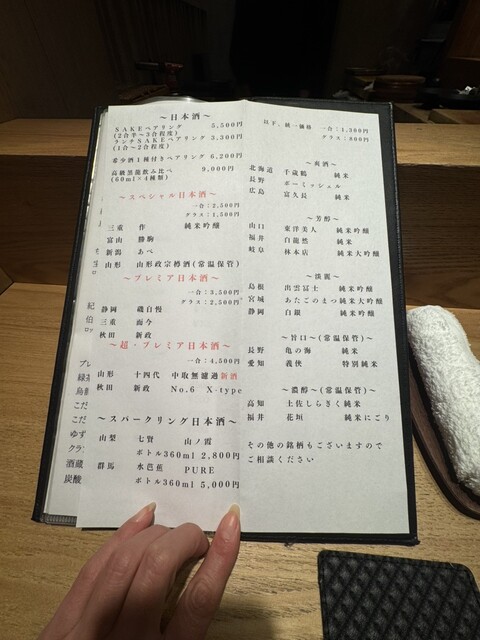 ～日本酒～
SAKEペアリング 5,500円
(2合半～3合程度)
ランチSAKEペアリング 3,300円
(1合～2合程度)
希少酒1種付きペアリング 6,200円
高級黒龍飲み比べ 9,000円
(60ml×4種類)
～スペシャル日本酒～
一合:2,500円
グラス:1,500円
三重 作 純米吟醸
富山 勝駒
新潟 あべ
山形 山形政宗樽酒(常温保管)
～プレミア日本酒～
一合:3,500円
グラス:2,500円
静岡 磯自慢
三重 而今
秋田 新政
～超・プレミア日本酒～
一合:4,500円
山形 十四代 中取無濾過新酒
秋田 新政 No.6 X-type
～スパークリング日本酒～
山梨 七賢 山ノ霞
ボトル360ml 2,800円
群馬 水芭蕉 PURE
ボトル360ml 5,000円
以下、統一価格 一合:1,300円
グラス:800円
～爽酒～
北海道 千歳鶴 純米
長野 ボーミッシェル
広島 富久長 純米
～芳醇～
山口 東洋美人 純米吟醸
福井 白龍然 純米
岐阜 林本店 純米大吟醸
～淡麗～
島根 出雲富士 純米吟醸
宮城 あたごのまつ純米大吟醸
静岡 白銀 純米吟醸
～旨口～(常温保管)
長野 亀の海 純米
愛知 義侠 特別純米
～濃醇～(常温保管)
高知 土佐しらぎく純米
福井 花垣 純米にごり
その他の銘柄もございますので
ご相談ください
紀
伯
ロッ
プレ
緑茶
烏龍
こだ
こだ
ゆず
クラ
酒蔵
炭酸